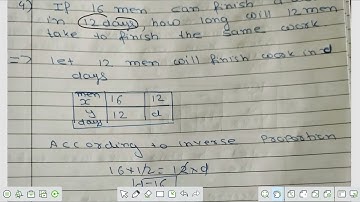 9) If 16 men can finish a
in 12 days how long will 12 men
take to finish the same work
=> let 12 men will finish work in d
days
men x 16 12
y days 12 d
According to inverse proportion
16 × 12 = 12 × d
d = 16